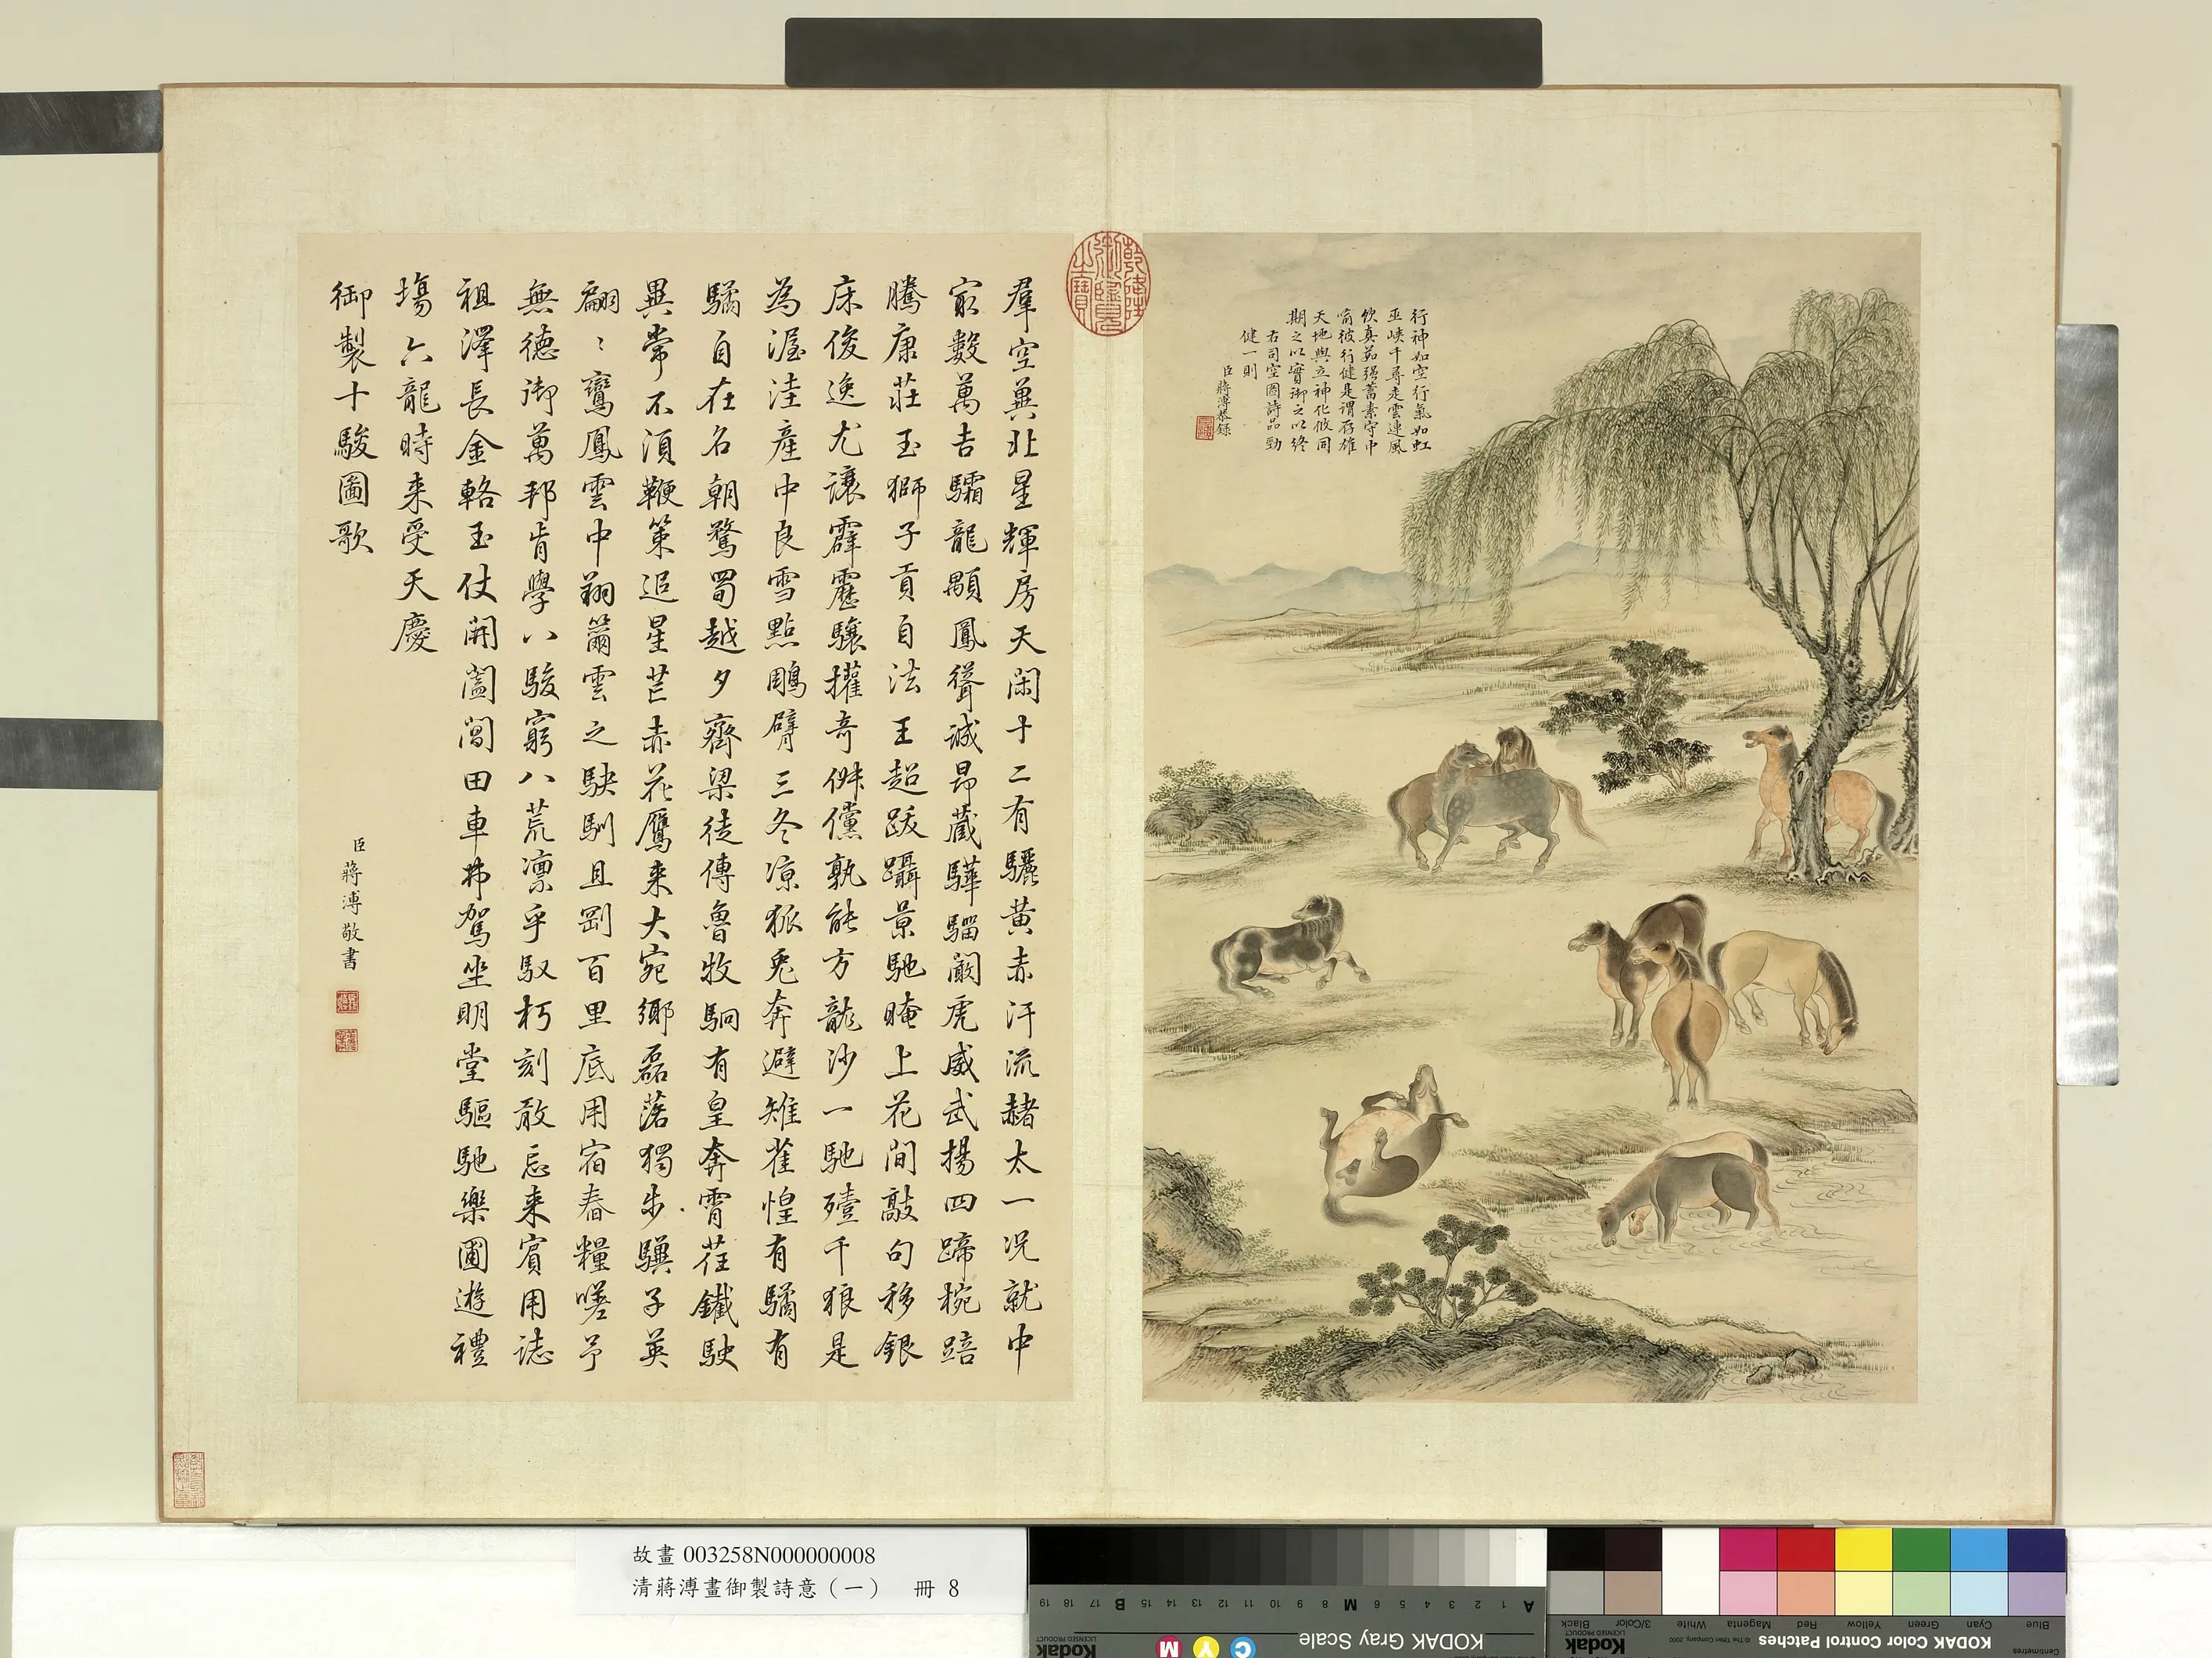 行神如空行氣如虹
巫峽千尋走雲連風
飲真茹强蓄素守中
喻彼行健是謂存雄
天地與立神化攸同
期之以實御之以終
右司空圖詩品勁
健一則
臣蔣溥恭錄
乾隆御覽之寶
羣空兾北星輝房天閑十二有驪黃赤汗流赭太一况就中
寂數萬吉驦龍顒鳳聳誠昂藏驊騮闞虎威武揚四蹄椀踣
騰康莊玉獅子貢自法王超跋躡景馳晻上花間敲句移銀
床俊逸尤讓霹靂驤擢奇倜儻孰能方龍沙一馳殪千狼是
為渥洼產中良雪點鵰臂三冬凉狐兎奔避雉雀惶有驈有
驈自在名朝騖蜀越夕齊梁徒傳魯牧駉有皇奔霄茬鐵駛
異常不湏鞭策追星芒赤花鷹来大宛鄉磊落獨步驥子英
翩〻鸞鳳雲中翔籋雲之駛馴且剛百里底用宿舂糧嗟予
無德御萬邦肯學八駿窮八荒凛乎馭朽刻敢忘来賓用誌
祖澤長金輅玉仗開閶闔田車弗駕坐明堂驅馳樂圃遊禮
塲六龍時来受天慶
御製十駿圖歌
臣蔣溥敬書
故畫 003258N000000008
清蔣溥畫御製詩意（一） 冊 8
19 18 17 16 15 B 14 13 12 11 10 9 8 M 7 6 5 4 3 2 1 A
KODAK Gray Scale
Kodak
LICENSED PRODUCT
C Y M
Blue Cyan Green Yellow Red Magenta White 3/Color Black
KODAK Color Control Patches
© The Tiffen Company, 2000
Kodak
LICENSED PRODUCT
Centimetres